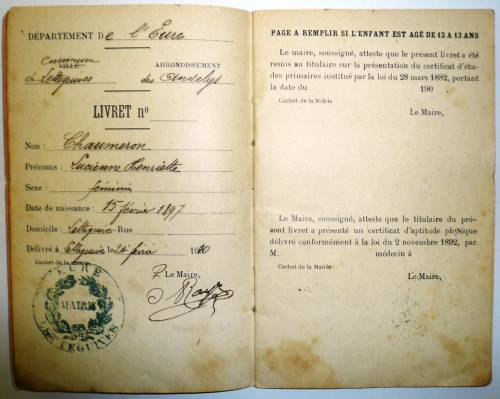 DÉPARTEMENT De l'Eure
Commune
VILLE ARRONDISSEMENT
de Letteguives des Andelys
LIVRET nº
Nom : Chaumeron
Prénoms : Lucienne Henriette
Sexe : féminin
Date de naissance : 15 février 1897
Domicile : Letteguives Rue
Délivré à Letteguives le 24 1910
Cachet de la Mairie Le Maire,
EURE
MAIRIE
LETTEGUIVES
PAGE A REMPLIR SI L'ENFANT EST AGÉ DE 12 A 13 ANS
Le maire, soussigné, atteste que le présent livret a été
remis au titulaire sur la présentation du certificat d'étu-
des primaires institué par la loi du 28 mars 1882, portant
la date du 190
Cachet de la Mairie
Le Maire,
Le Maire, soussigné, atteste que le titulaire du pré-
sent livret a présenté un certificat d'aptitude physique
délivré conformément à la loi du 2 novembre 1892, par
M. médecin à
Cachet de la Mairie
Le Maire,